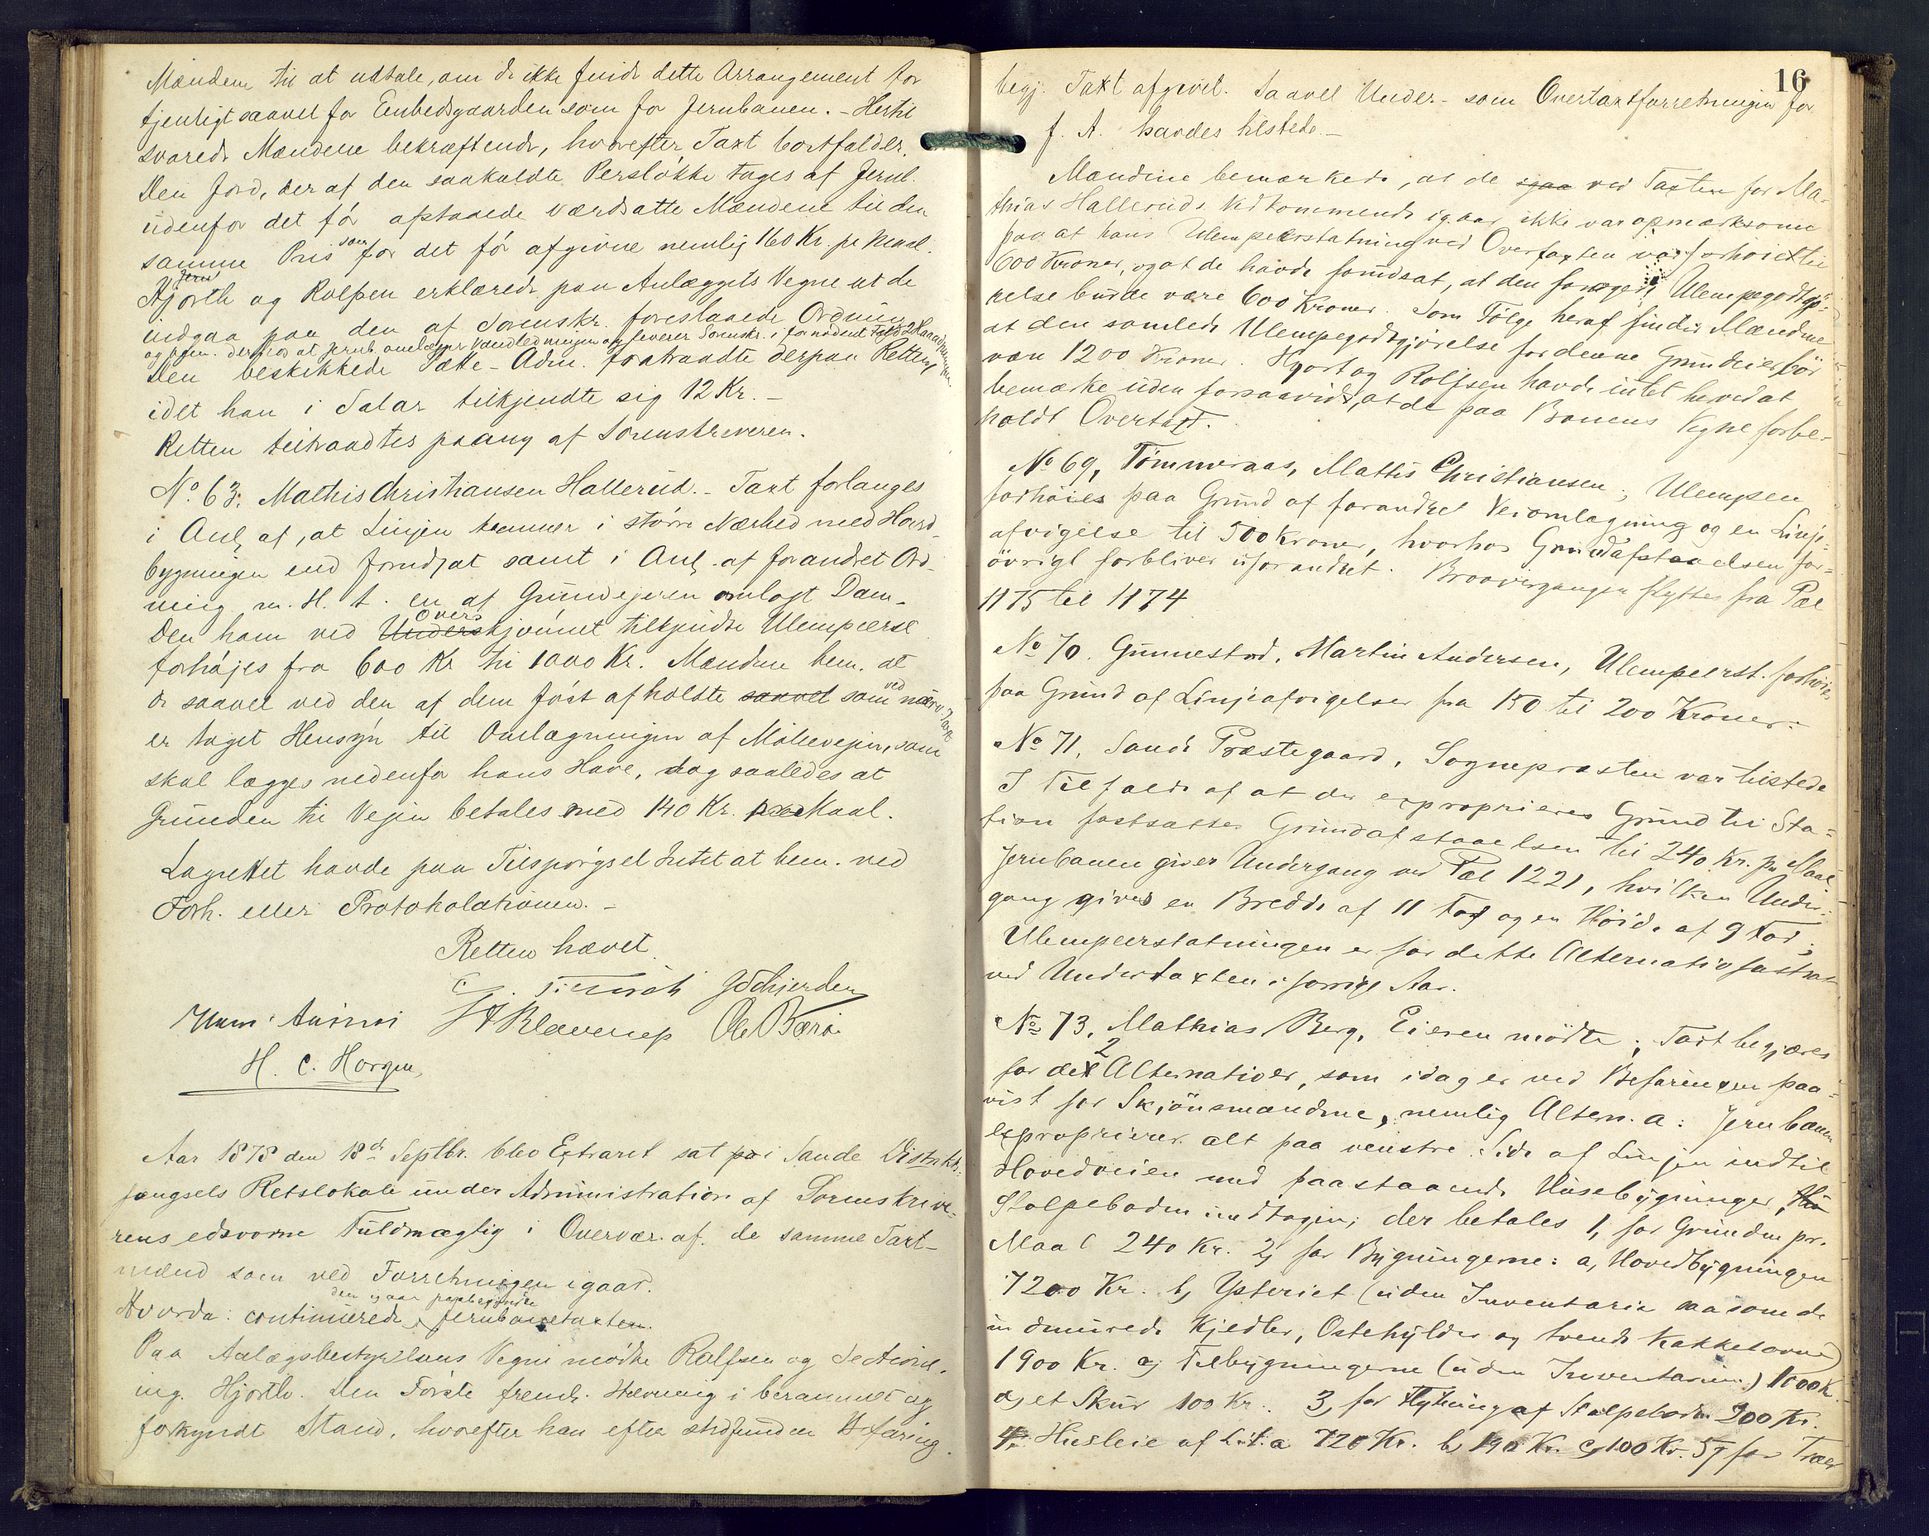 Mændene til at udtale, om de ikke finde dette Arrangement for
tjenligt saavel for Embedsgaarden som for Jernbanen. – Hertil
svarede Mændene bekræftende, hvorefter Taxt bortfalder.
Den Jord, der af den saakaldte Persløkke tages af Jernb.
udenfor det før afstaaede værdsatte Mændene til den
samme Pris som for det før afgivne nemlig 160 Kr. pr Maal.
Hjorth og Rolfsen erklærede paa Anlæggets Vegne at de
indgaa paa den af Sorenskr. foreslaaede Ordning
Den beskikkede Sætte-Adm. fratraadte derpaa Retten,
idet han i Salær tilkjendte sig 12 Kr. –
Retten tiltraadtes paany af Sorenskriveren.
No. 63. Mathis Christiansen Hallerud. – Taxt forlanges
i Anl. af, at Linjen kommer i større Nærhed med Hoved-
bygningen end forudsat samt i Anl. af forandret Ord-
ning m. H. t. en af Grundejeren anlagt Dam.
Den ham ved Underskjønnet Overs tilkjendte Ulempeerst.
forhøjes fra 600 Kr til 1000 Kr. Mændene bem. at
de saavel ved den af dem først afholdte saavel som ved nærv. Taxt
er taget Hensyn til Omlægningen af Møllevejen, som
skal lægges nedenfor hans Have, dog saaledes at
Grunden til Vejen betales med 140 Kr. pr Maal.
Lagrettet havde paa Tilspørgsel Intet at bem. ved
Forh. eller Protokolationen. –
Retten hævet.
H. C. Horgen
Aar 1878 den 18de Septbr. blev Extraret sat paa i Sande Distrikts-
fængsels Retslokale under Administration af Sorenskrive-
rens edsvorne Fuldmægtig i Overvær. af de samme Taxt-
mænd som ved Forretningen igaar.
Hvorda: continuerede den igaar paabegyndte Jernbanetaxten.
Paa Anlægsbestyrelsens Vegne mødte Rolfsen og Sections-
ing. Hjorth. Den Første freml. Stævning i berammet og
forkyndt Stand, hvorefter han efter stedfunden Befaring
16
begj. Taxt afgivet. Saavel Under- som Overtaxtforretningen for
f. A. havdes tilstede. –
Mændene bemærkede, at de igaar ved Taxten for Ma-
thias Halleruds Vedkommende igaar ikke var opmærksomme
paa at hans Ulempeerstatning ved Overtaxten var forhøiet til
600 Kroner, og at de havde forudsat, at den forøgede Ulempegodtgjø-
relse burde være 600 Kroner. Som Følge heraf finder Mændene
at den samlede Ulempegodtgjørelse for denne Grundeier bør
være 1200 Kroner. Hjort og Rolfsen havde intet herved at
bemærke uden forsaavidt, at de paa Banens Vegne forbe-
holdt Overtaxt.
No 69, Tømmeraas, Mattis Christiansen; Ulempen
forhøies paa Grund af forandret Veiomlægning og en Linje-
afvigelse til 500 Kroner, hvorhos Grundafstaaelsen for-
øvrigt forbliver uforandret. Broovergangen flyttes fra Pæl
1175 til 1174
No 70. Gunnestad, Martin Andersen, Ulempeerst. forhøies
paa Grund af Linjeafvigelser fra 150 til 200 Kroner.
No 71. Sande Præstegaard, Sognepræsten var tilstede
I Tilfælde af at der exproprieres Grund til Sta-
tion fastsattes Grundafstaaelsen til 240 Kr. pr Maal
Jernbanen giver Undergang ved Pæl 1221, hvilken Under-
gang gives en Bredde af 11 Fod og en Høide af 9 Fod;
Ulempeerstatningen er for dette Alternativ fastsat
ved Undertaxten i forrige Aar.
No 73, Mathias Berg, Eieren mødte; Taxt begjæres
for de 2 Alternativer, som idag er ved Befaringen paa-
vist for Skjønsmændene, nemlig Altern. a: Jernbanen
exproprierer alt paa venstre Side af Linjen indtil
Hovedveien med paastaaende Husebygninger,
Stolpeboden indtagen; der betales 1, for Grunden pr.
Maal 240 Kr. 2, for Bygningerne: a, Hovedbygningen
7200 Kr. b, Ysteriet (uden Inventarie saasom de
indmurede Kjedler, Ostehylder og tvende Kakkelovne)
1900 Kr. c, Tilbygningerne (uden Inventarium) 1000 Kr.
d, et Skur 100 Kr. 3, for Flytning af Stolpeboden 200 Kr.
4, Husleie af Lit. a 720 Kr. b, 190 Kr. c, 100 Kr. 5, for Træer